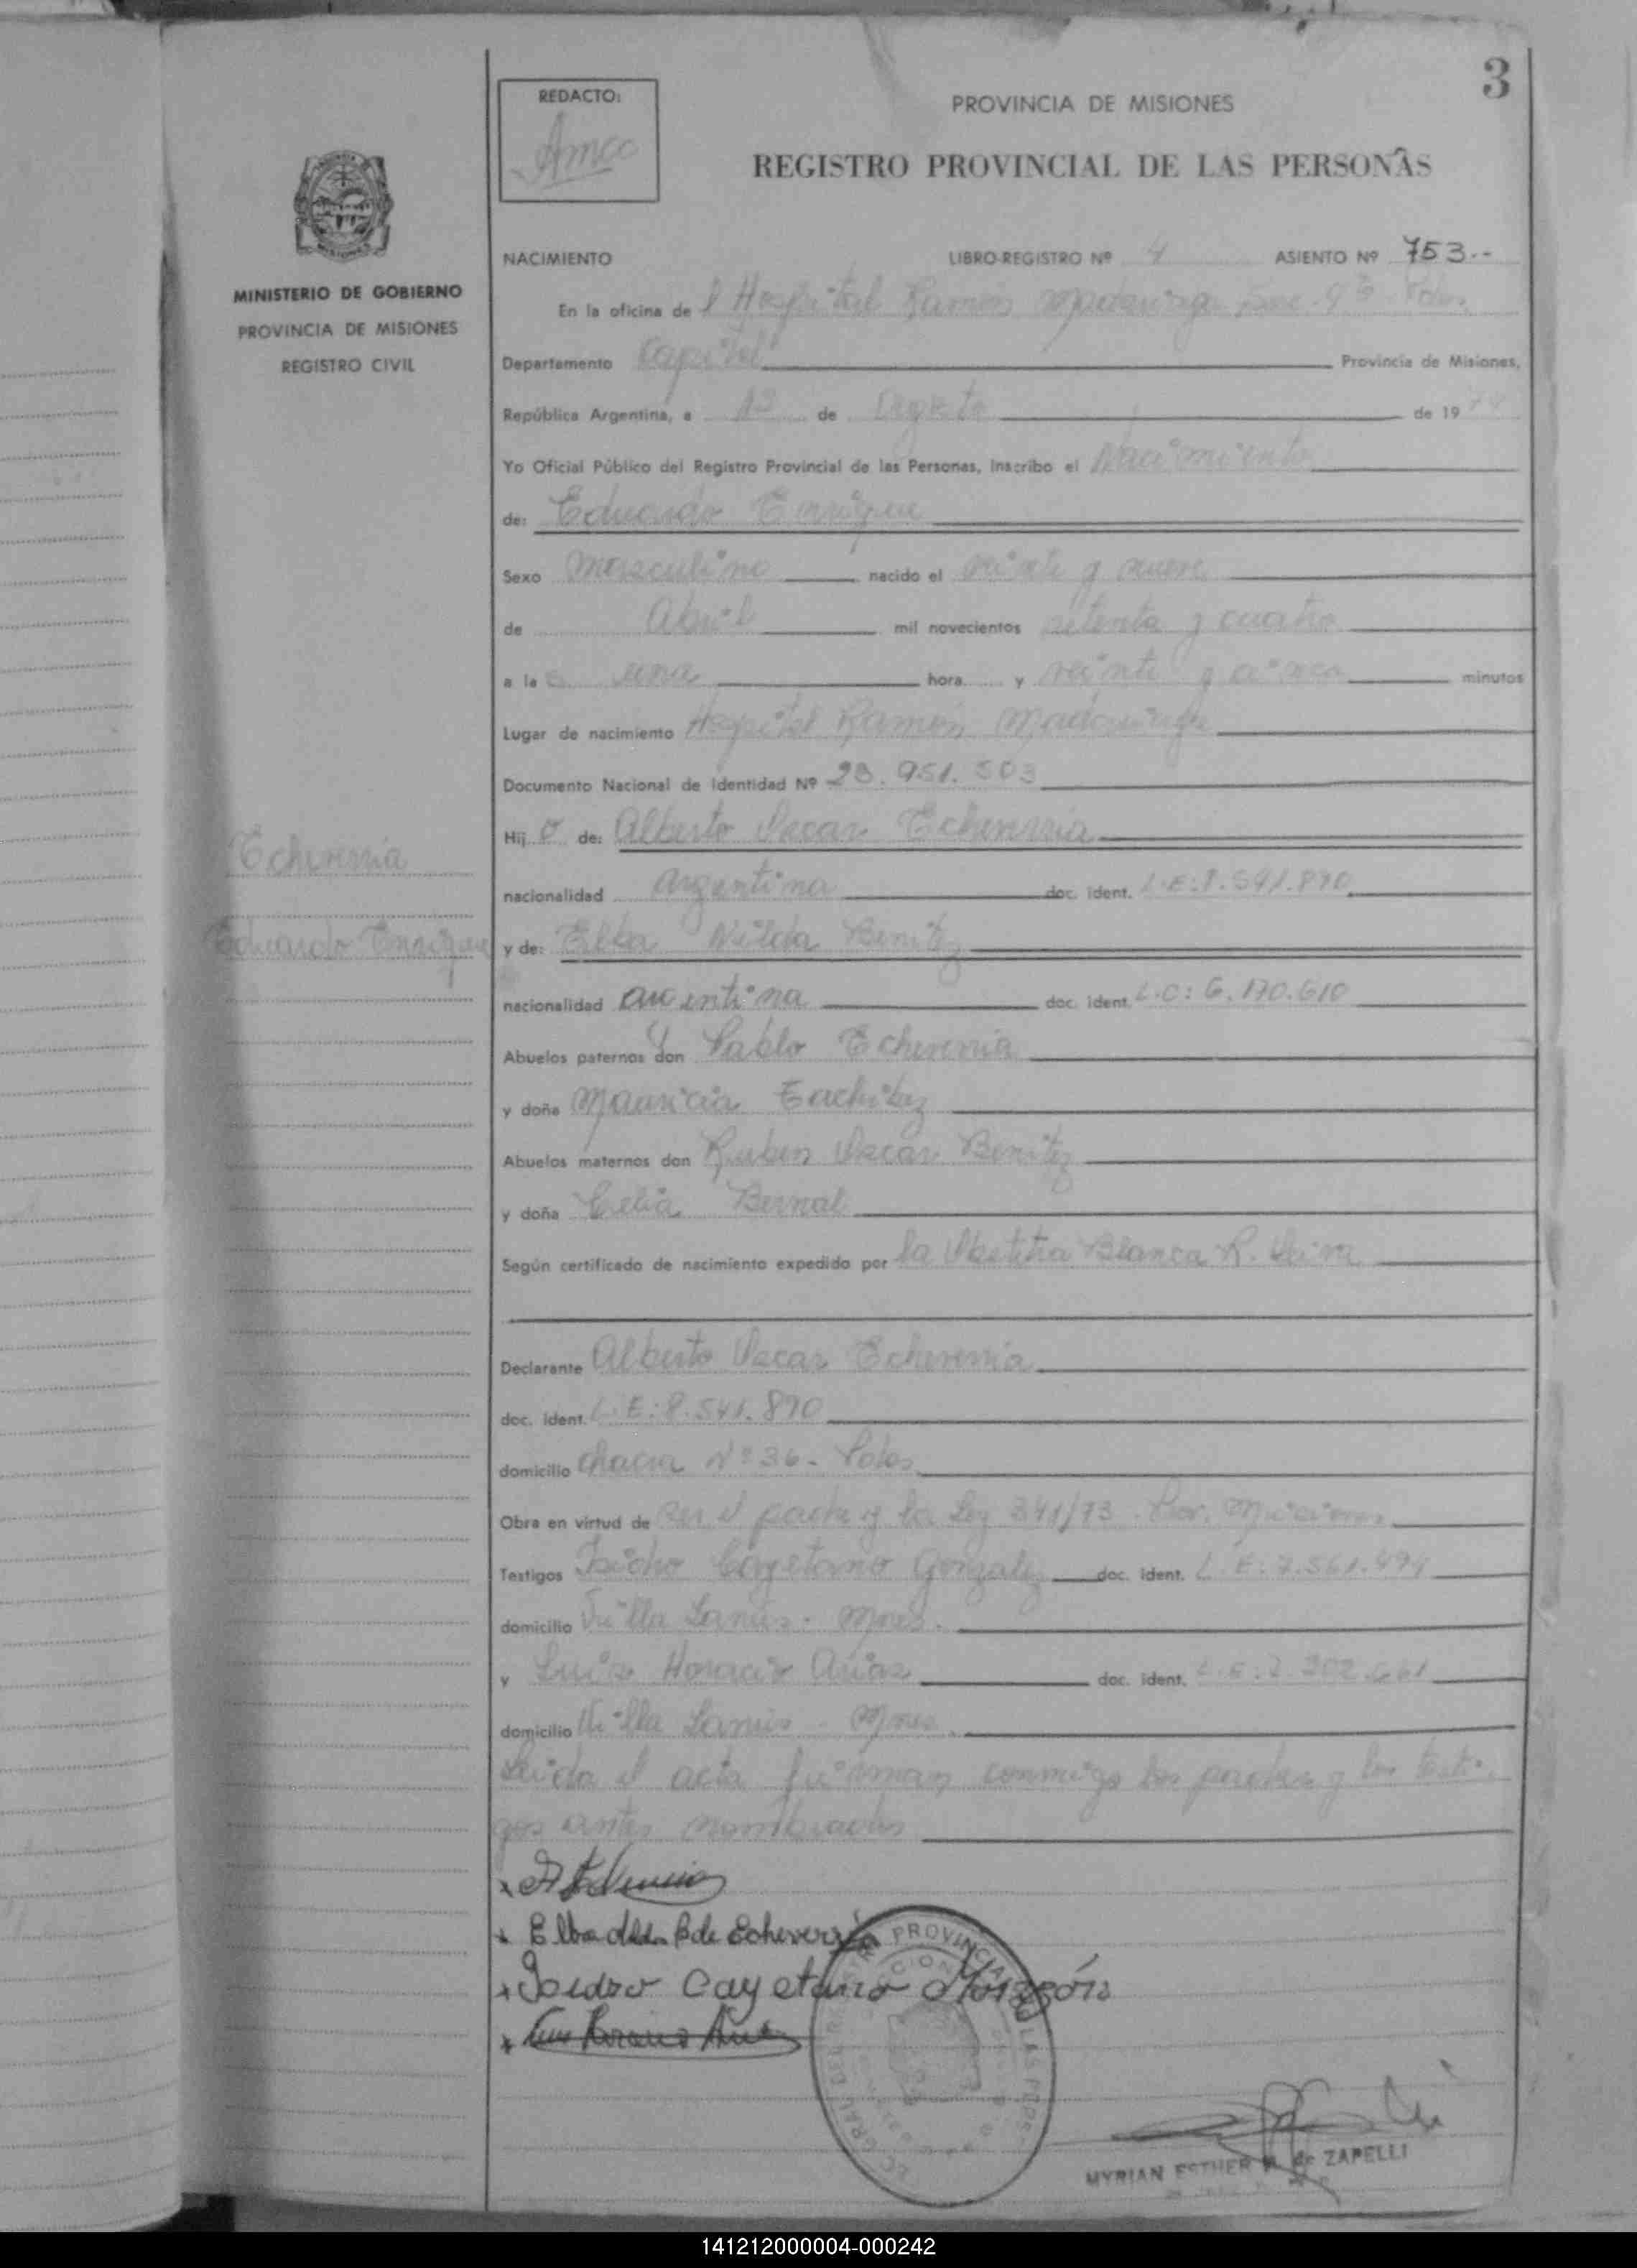 3
REDACTO:
PROVINCIA DE MISIONES
REGISTRO PROVINCIAL DE LAS PERSONAS
MINISTERIO DE GOBIERNO
PROVINCIA DE MISIONES
REGISTRO CIVIL
NACIMIENTO LIBRO-REGISTRO Nº 4 ASIENTO Nº 753.-
En la oficina de l Hospital Ramón Madariaga
Departamento Capital Provincia de Misiones,
República Argentina, a 13 de Agosto de 1974
Yo Oficial Público del Registro Provincial de las Personas, Inscribo el Nacimiento
de: Eduardo Enrique
Sexo masculino nacido el veinte y nueve
de Abril mil novecientos setenta y cuatro
a la una hora y veinte y cinco minutos
Lugar de nacimiento Hospital Ramón Madariaga
Documento Nacional de Identidad Nº 23.951.503
Hijo de: Alberto Oscar Echeverria
nacionalidad argentina doc. ident. L.E: 8.541.890
Echeverria
Eduardo Enrique
y de: Elba Nilda Benitez
nacionalidad argentina doc. ident. L.C: 6.170.610
Abuelos paternos don Pablo Echeverria
y doña Mauricia
Abuelos maternos don Ruben Oscar Benitez
y doña Celia Bernal
Según certificado de nacimiento expedido por la Obstetra Blanca R.
Declarante Alberto Oscar Echeverria
doc. ident. L.E: 8.541.890
domicilio chacra Nº 36 - Pdas
Obra en virtud de ser el padre y la Ley 341/73 - Pov. Misiones
Testigos Isidro Cayetano doc. ident. L.E: 7.561.494
domicilio Villa Lanús - Mnes.
y Luis Horacio Arias doc. ident.
domicilio Villa Lanús - Mnes.
Leida el acta firman conmigo los padres y los testi-
gos antes nombrados
Elba de Echeverria
Isidro Cayetano
Luis Horacio Arias
MYRIAN ESTHER de ZAPELLI
141212000004-000242